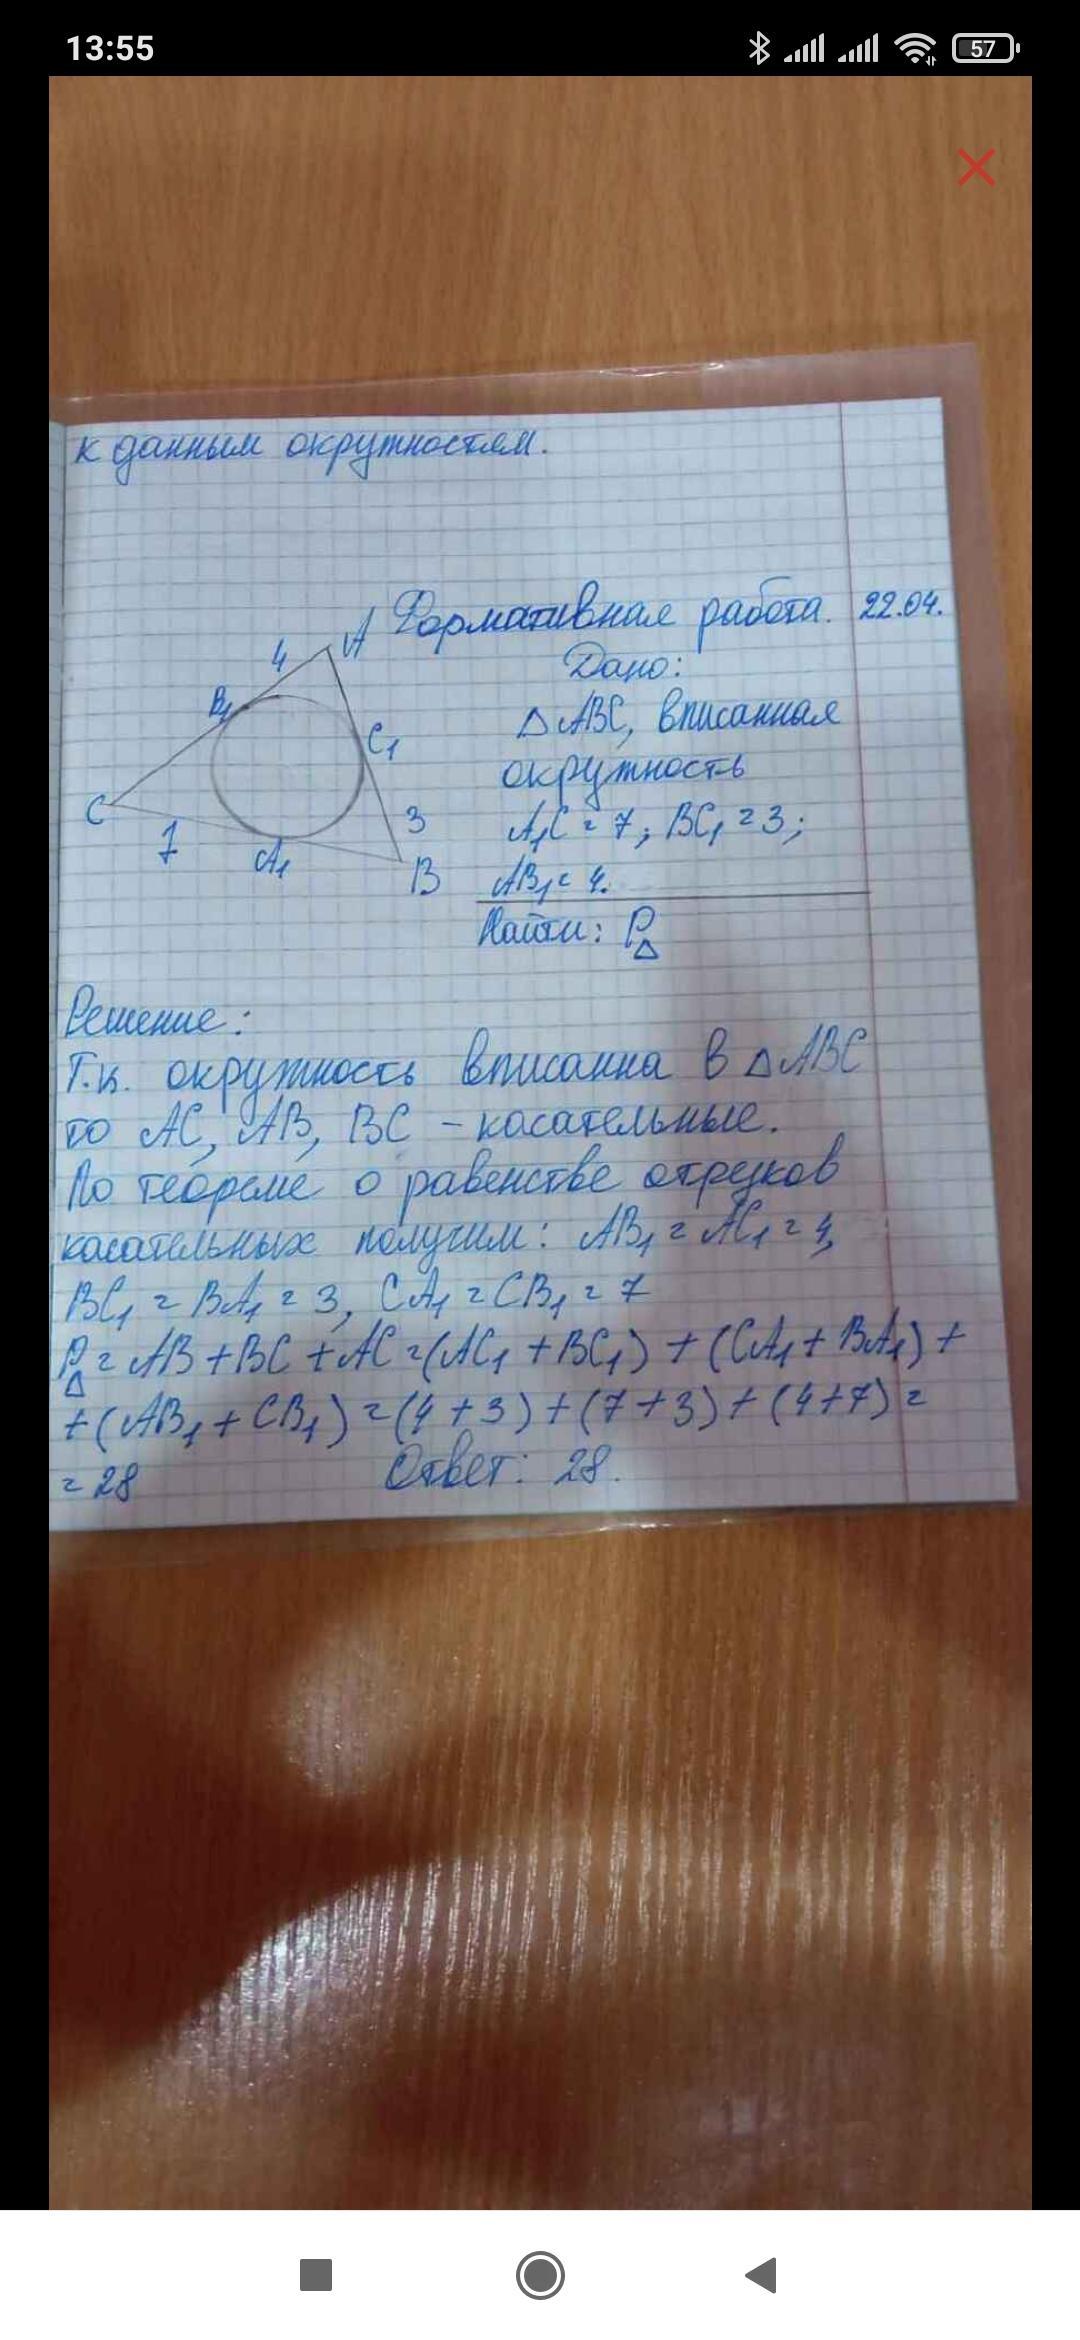 13:55
57
к данным окружностям.
Формативная работа. 22.04.
Дано:
△ABC, вписанная
окружность
A₁C = 7; BC₁ = 3;
AB₁ = 4.
Найти: P△
A
4
B₁
C₁
C
7
A₁
3
B
Решение:
Т.к. окружность вписанна в △ABC
то AC, AB, BC - касательные.
По теореме о равенстве отрезков
касательных получим: AB₁ = AC₁ = 4,
BC₁ = BA₁ = 3, CA₁ = CB₁ = 7
P△ = AB + BC + AC = (AC₁ + BC₁) + (CA₁ + BA₁) +
+ (AB₁ + CB₁) = (4 + 3) + (7 + 3) + (4 + 7) =
= 28 Ответ: 28.